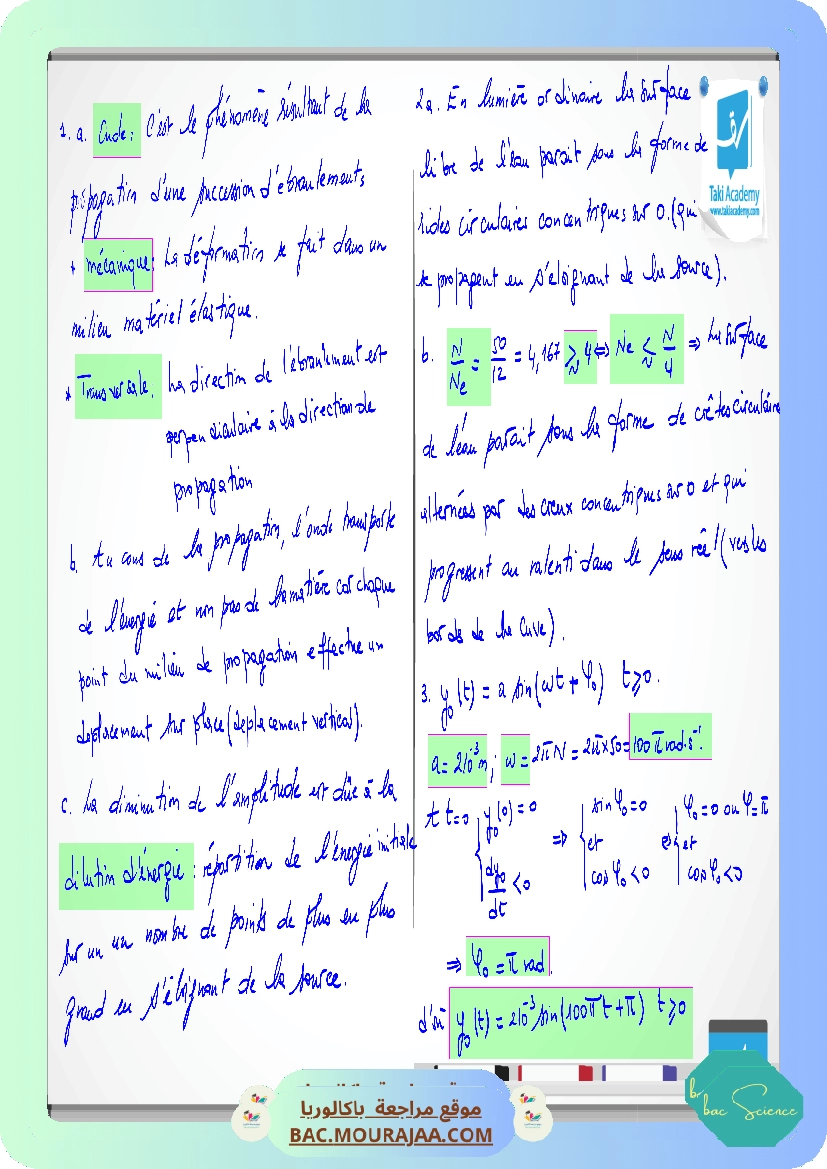 1. a. Onde : C'est le phénomène résultant de la
propagation d'une succession d'ébranlements
* mécanique : La déformation se fait dans un
milieu matériel élastique.
* Transversale. La direction de l'ébranlement est
perpendiculaire à la direction de
propagation
b. Au cours de la propagation, l'onde transporte
de l'énergie et non pas de la matière car chaque
point du milieu de propagation effectue un
déplacement sur place (déplacement vertical).
c. La diminution de l'amplitude est dûe à la
dilution d'énergie : répartition de l'énergie initiale
sur un un nombre de points de plus en plus
grand en s'éloignant de la source.
2a. En lumière ordinaire la surface
libre de l'eau parait sous la forme de
rides circulaires concentriques sur O. (qui
se propagent en s'éloignant de la source).
b. N/Ne = 50/12 = 4,167 ≥ 4 ⇔ Ne ≤ N/4 ⇒ La surface
de l'eau parait sous la forme de crêtes circulaires
alternées par des creux concentriques sur O et qui
progressent au ralenti dans le sens réel (vers les
bords de la cuve).
3. y₀(t) = a sin(ωt + φ₀) t≥0.
a = 2 10⁻³ m ; ω = 2πN = 2π×50 = 100π rad.s⁻¹.
A t=0 { y₀(0) = 0 et dy₀/dt < 0 ⇒ { sin φ₀ = 0 et cos φ₀ < 0 ⇔ { φ₀ = 0 ou φ₀ = π et cos φ₀ < 0
⇒ φ₀ = π rad.
d'où y₀(t) = 2 10⁻³ sin(100πt + π) t≥0
Taki Academy
www.takiacademy.com
bac Science
موقع مراجعة باكالوريا
BAC.MOURAJAA.COM